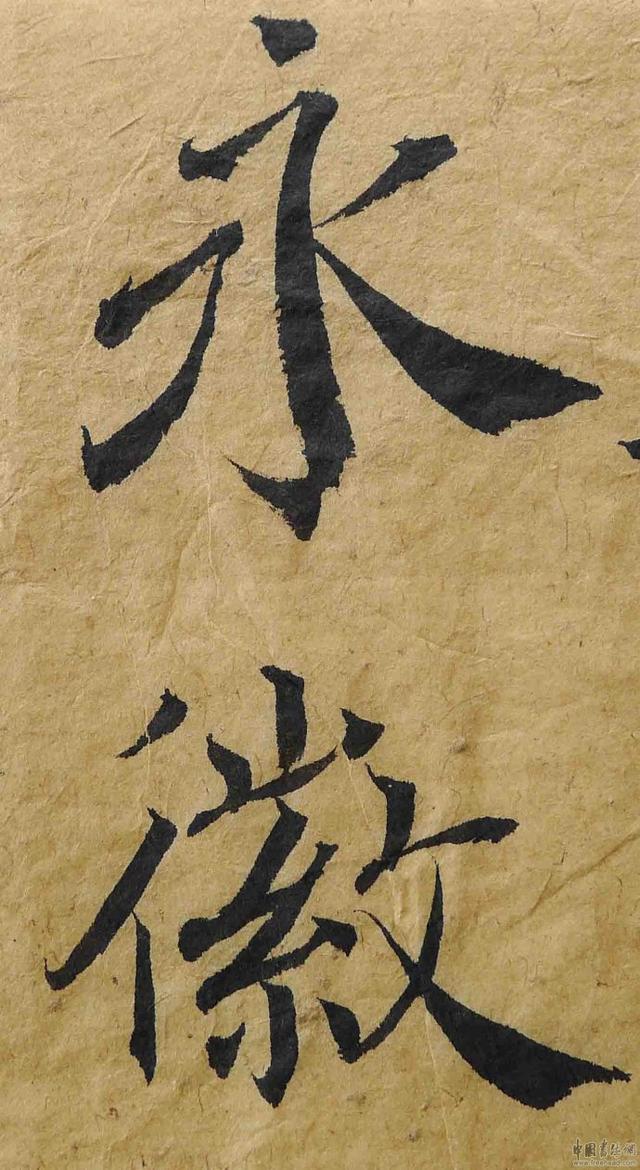 永徽
中国书法网